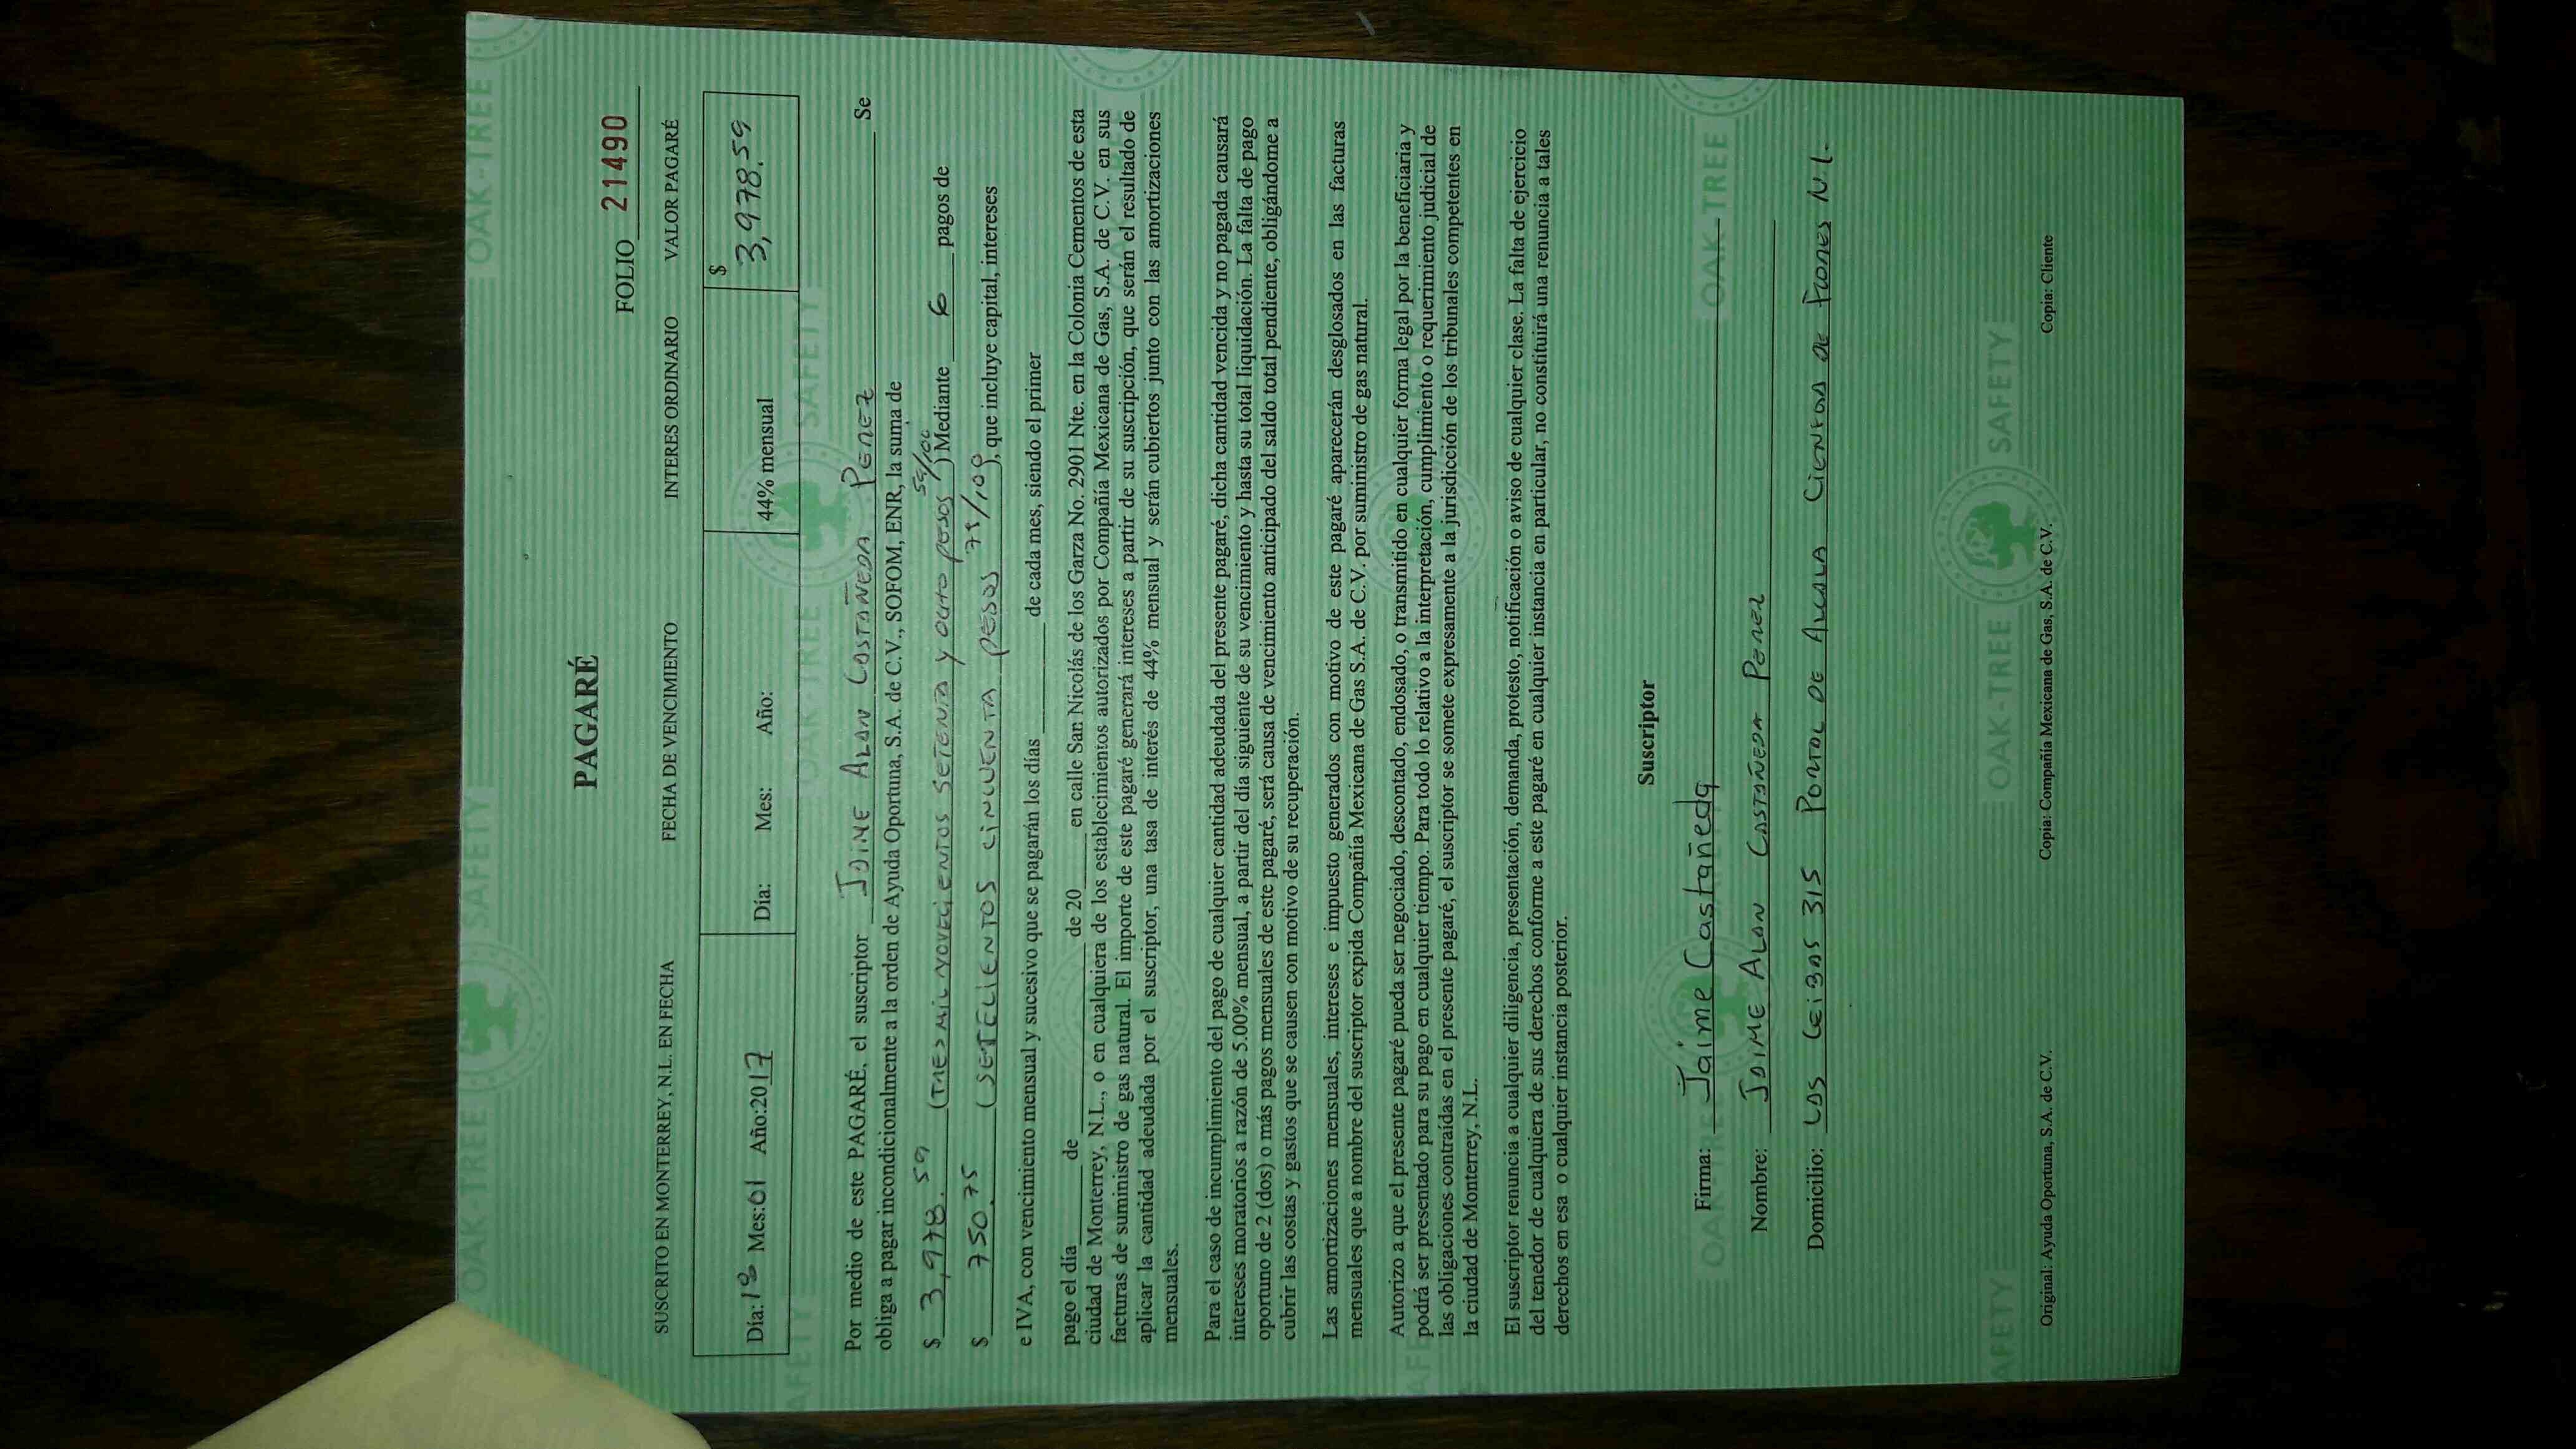 OAK-TREE SAFETY OAK-TREE
PAGARÉ
FOLIO 21490
SUSCRITO EN MONTERREY, N.L. EN FECHA FECHA DE VENCIMIENTO INTERES ORDINARIO VALOR PAGARÉ
Día: 18 Mes: 01 Año: 2017 Día: Mes: Año: 44% mensual $ 3,978.59
AFETY OAK-TREE SAFETY
Por medio de este PAGARÉ, el suscriptor JAIME ALAN CASTAÑEDA PEREZ Se
obliga a pagar incondicionalmente a la orden de Ayuda Oportuna, S.A. de C.V., SOFOM, ENR, la suma de
$ 3,978.59 (TRES MIL NOVECIENTOS SETENTA Y OCHO PESOS 59/100) Mediante 6 pagos de
$ 750.75 (SETECIENTOS CINCUENTA PESOS 75/100), que incluye capital, intereses
e IVA, con vencimiento mensual y sucesivo que se pagarán los días de cada mes, siendo el primer
pago el día de de 20 en calle San Nicolás de los Garza No. 2901 Nte. en la Colonia Cementos de esta
ciudad de Monterrey, N.L., o en cualquiera de los establecimientos autorizados por Compañía Mexicana de Gas, S.A. de C.V. en sus
facturas de suministro de gas natural. El importe de este pagaré generará intereses a partir de su suscripción, que serán el resultado de
aplicar la cantidad adeudada por el suscriptor, una tasa de interés de 44% mensual y serán cubiertos junto con las amortizaciones
mensuales.
Para el caso de incumplimiento del pago de cualquier cantidad adeudada del presente pagaré, dicha cantidad vencida y no pagada causará
intereses moratorios a razón de 5.00% mensual, a partir del día siguiente de su vencimiento y hasta su total liquidación. La falta de pago
oportuno de 2 (dos) o más pagos mensuales de este pagaré, será causa de vencimiento anticipado del saldo total pendiente, obligándome a
cubrir las costas y gastos que se causen con motivo de su recuperación.
Las amortizaciones mensuales, intereses e impuesto generados con motivo de este pagaré aparecerán desglosados en las facturas
mensuales que a nombre del suscriptor expida Compañía Mexicana de Gas S.A. de C.V. por suministro de gas natural.
Autorizo a que el presente pagaré pueda ser negociado, descontado, endosado, o transmitido en cualquier forma legal por la beneficiaria y
podrá ser presentado para su pago en cualquier tiempo. Para todo lo relativo a la interpretación, cumplimiento o requerimiento judicial de
las obligaciones contraídas en el presente pagaré, el suscriptor se somete expresamente a la jurisdicción de los tribunales competentes en
la ciudad de Monterrey, N.L.
El suscriptor renuncia a cualquier diligencia, presentación, demanda, protesto, notificación o aviso de cualquier clase. La falta de ejercicio
del tenedor de cualquiera de sus derechos conforme a este pagaré en cualquier instancia en particular, no constituirá una renuncia a tales
derechos en esa o cualquier instancia posterior.
Suscriptor
Firma: Jaime Castañeda
Nombre: JAIME ALAN CASTAÑEDA PEREZ
Domicilio: LAS CEIBAS 315 PORTAL DE ALCALA CIENEGA DE FLORES N.L.
AFETY OAK-TREE SAFETY
Original: Ayuda Oportuna, S.A. de C.V. Copia: Compañía Mexicana de Gas, S.A. de C.V. Copia: Cliente